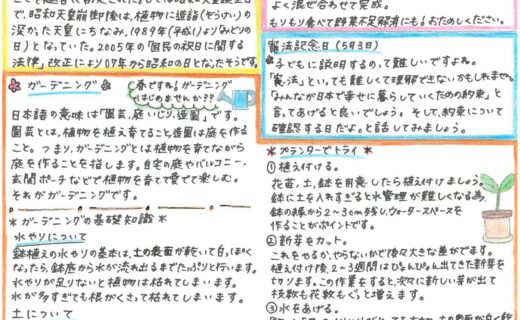 で、昭和天皇崩御後は、植物に造詣(ぞうけい)の
深かった天皇にちなみ、1989年(平成1)よりみどりの
日」となっていた。2005年の「国民の祝日に関する
法律」改正により07年から昭和の日となったそうです。
ガーデニング
春ですね!ガーデニング
はじめませんか??
日本語の意味は「園芸、庭いじり、造園」です。
園芸とは、植物を植え育てること造園は庭を作る
こと。つまり、ガーデニングとは植物を育てながら
庭を作ることを指します。自宅の庭やバルコニー、
玄関ポーチなどで植物を育て愛でて楽しむ。
それがガーデニングです。
*ガーデニングの基礎知識*
水やりについて
鉢植えの水やりの基本は、土の表面が乾いて白っぽく
なったら、鉢底から水が流れ出るまでたっぷりと行います。
水やりが足りないと植物は枯れてしまいます。
水が多すぎても根がくさって枯れてしまいます。
土について
よく混ぜ合わせて完成。
もりもり食べて野菜不足解消にもおためしください。
憲法記念日(5月3日)
子どもに説明するのって難しいですよね。
「憲法」といっても難しくて理解できないかもしれません。
「みんなが日本で幸せに暮らしていくための約束」と
言ってあげると良いでしょう。そして、約束について
確認する日だよと話してみましょう。
*プランターでトライ*
①植え付ける。
花苗、土、鉢を用意したら植え付けましょう。
鉢に土を入れすぎると水管理が難しくなる為、
鉢の縁から2~3cm残し、ウォータースペースを
作ることがポイントです。
②新芽をカット。
これをやるか、やらないかで後々大きな差がでます。
植え付け後、2~3週間はぴょんぴょん出てきた新芽を
切ります。この作業をすると、次々に新しい芽が出て
枝数も花数もぐっと増えます。
③水をあげる。